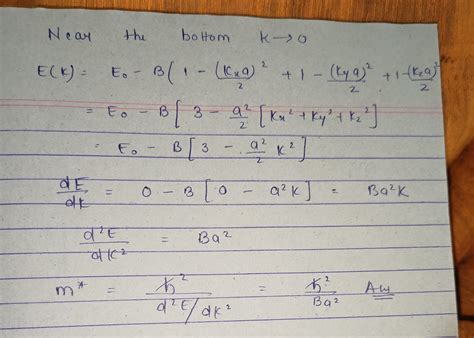 Near the bottom k→0
E(k) = E₀ - B( 1 - (kₓa)²/2 + 1 - (kᵧa)²/2 + 1 - (k_z a)²/2
= E₀ - B[ 3 - a²/2 [kₓ² + kᵧ² + k_z²]
= E₀ - B[ 3 - a²/2 k²]
dE/dk = 0 - B[ 0 - a²k] = Ba²k
d²E/dk² = Ba²
m* = ħ²/d²E/dk² = ħ²/Ba² Ans